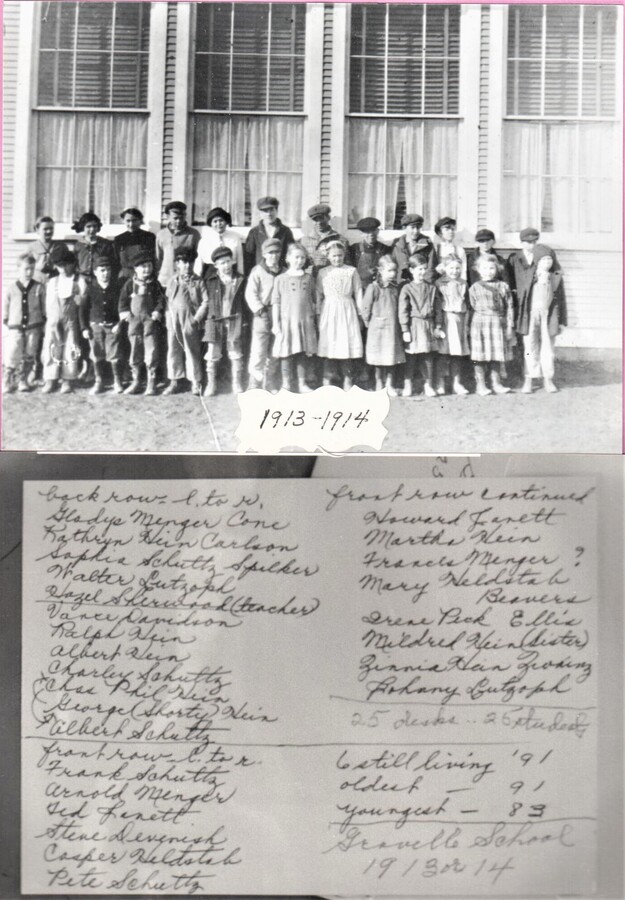 1913-1914
back row - l. to r.
Gladys Menger Cone
Kathryn Hein Carlson
Sophia Schuttz Spilker
Walter Lutzoph
Hazel Sherwood (teacher)
Vance Davidson
Ralph Hein
Albert Hein
Charley Schuttz
Chas Phil Hein
George (Shorty) Hein
Schuttz
front row - l. to r.
Frank Schuttz
Arnold Menger
Ted Lanett
Steve Devenish
Casper Heldstab
Pete Schuttz
front row continued
Howard Lanett
Martha Hein
Francis Menger ?
Mary Heldstab
Beavers
Irene Peck Ellis
Mildred Hein (sister)
Zinnia Hein
Johany Lutzoph
25 desks .. 25 students
6 still living '91
oldest - 91
youngest - 83
School
1913 or 14